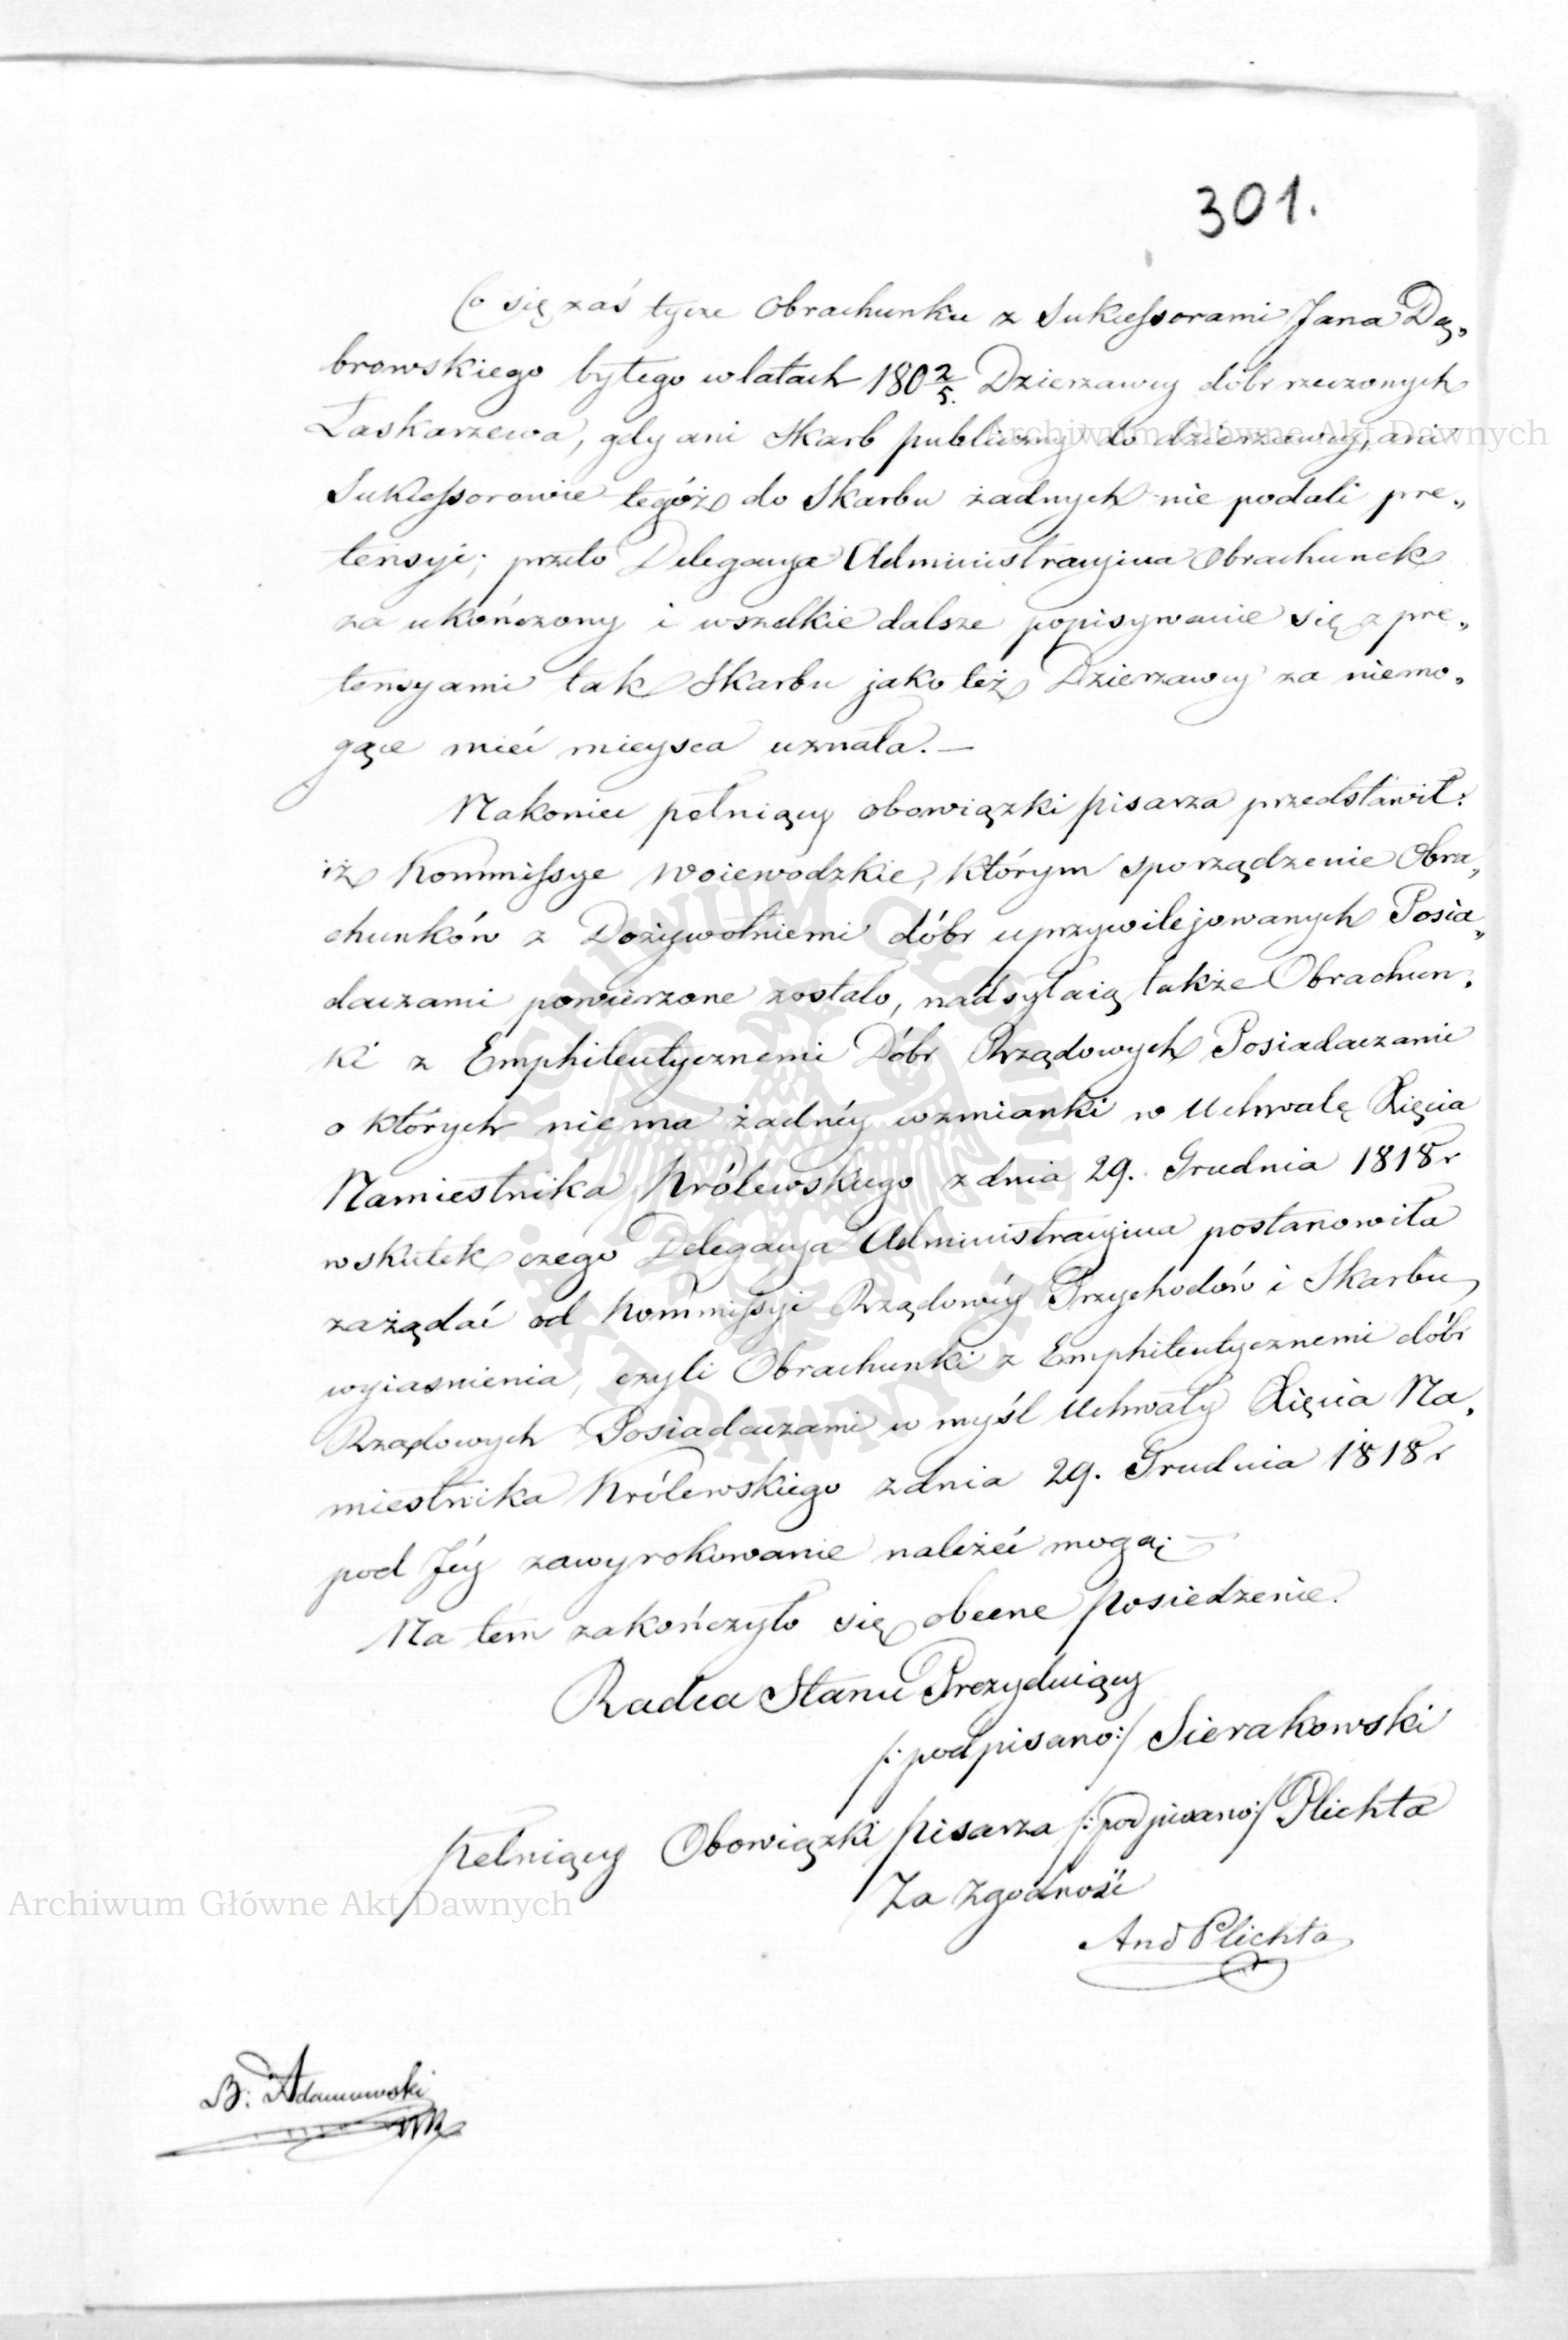 301.
Co się zaś tycze Obrachunku z Sukcessorami Jana Dą„
browskiego byłego w latach 180 2/5. Dzierzawcy dóbr rzeczonych
Łaskarzewa, gdy ani Skarb publiczny do dzierzawcy, ani
Sukcessorowie tegóż do Skarbu żadnych nie podali pre„
tensyi; przeto Delegacya Administracyina Obrachunek
za ukończony i wszelkie dalsze popisywanie się z pre„
tensyami tak Skarbu jako też Dzierzawcy za niemo„
gące mieć mieysca uznała. —
Nakoniec pełniący obowiązki pisarza przedstawił:
iż Kommissye Woiewodzkie, którym sporządzenie Obra„
chunków z Dożywotniemi dóbr uprzywilejowanych Posia„
daczami powierzone zostało, nadsyłaią także Obrachun„
ki z Emphiteutycznemi Dóbr Rządowych Posiadaczami
o których niema żadnéy wzmianki w Uchwale Xięcia
Namiestnika Królewskiego z dnia 29. Grudnia 1818 r
w skutek czego Delegacya Administracyina postanowiła
zażądać od Kommissyi Rządowéy Przychodów i Skarbu
wyiasnienia, czyli Obrachunki z Emphiteutycznemi dóbr
Rządowych Posiadaczami w myśl Uchwały Xięcia Na„
miestnika Królewskiego z dnia 29. Grudnia 1818 r
pod Jéy zawyrokowanie należeć mogą; —
Na tém zakończyło się obecne posiedzenie.
Radca Stanu Prezyduiący
/: podpisano :/ Sierakowski
pełniący Obowiązki pisarza /: podpisano :/ Plichta
Za Zgodność
And Plichta
B: Adamowski
Archiwum Główne Akt Dawnych
Archiwum Główne Akt Dawnych
ARCHIWUM GŁÓWNE AKT DAWNYCH